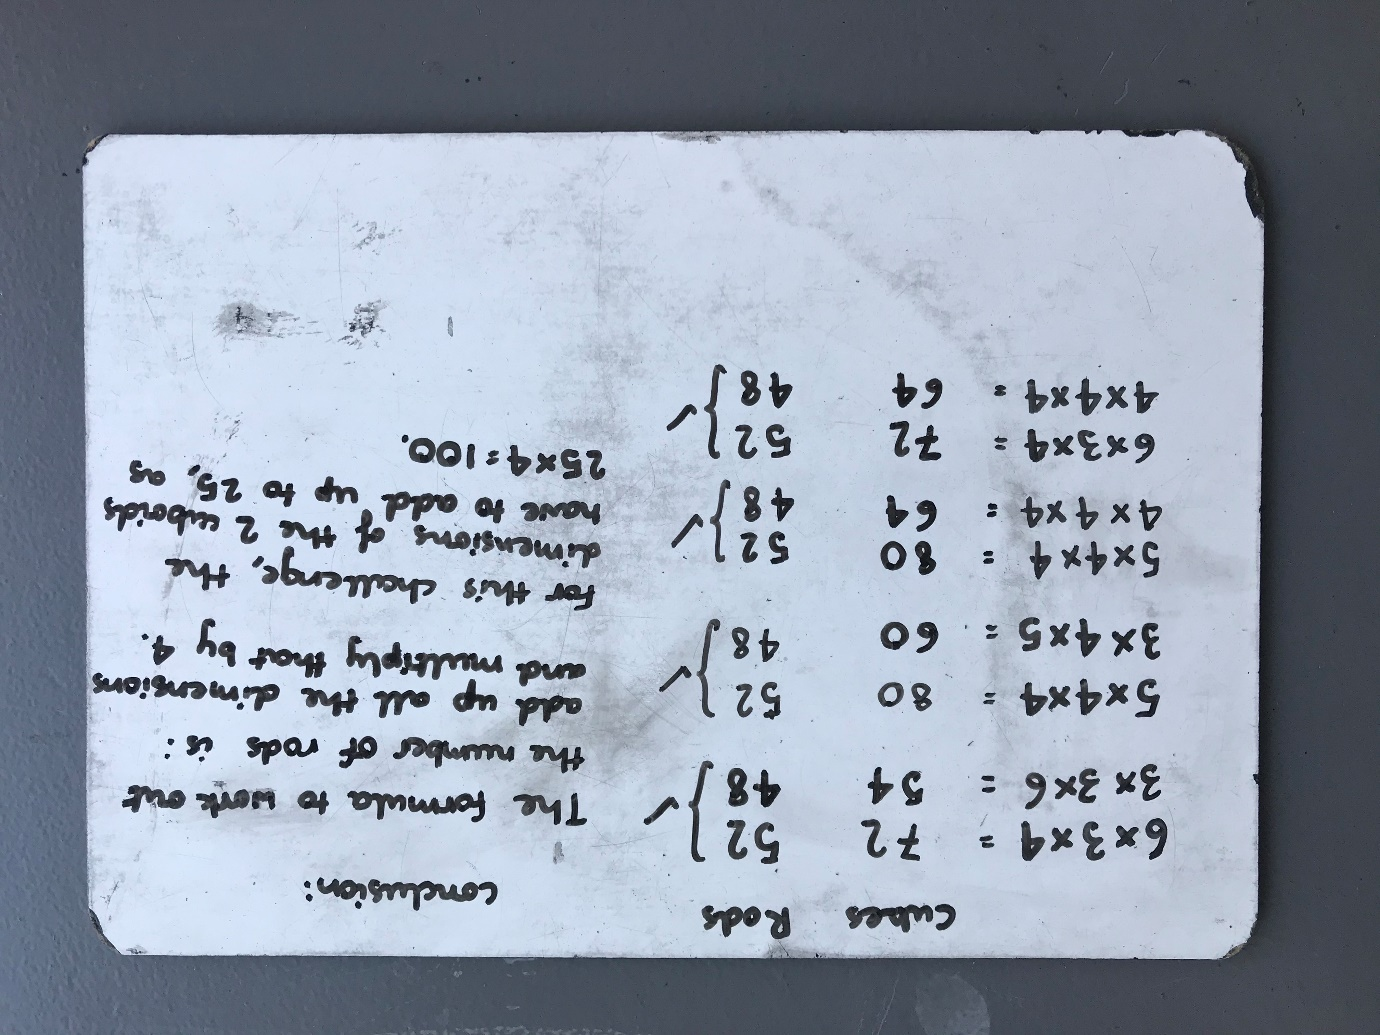 Cubes Rods
6x3x4 = 72 52
3x3x6 = 54 48
5x4x4 = 80 52
3x4x5 = 60 48
5x4x4 = 80 52
4x4x4 = 64 48
6x3x4 = 72 52
4x4x4 = 64 48
conclusion:
The formula to work out
the number of rods is:
add up all the dimensions
and multiply that by 4.
for this challenge, the
dimensions of the 2 cuboids
have to add up to 25, as
25x4=100.